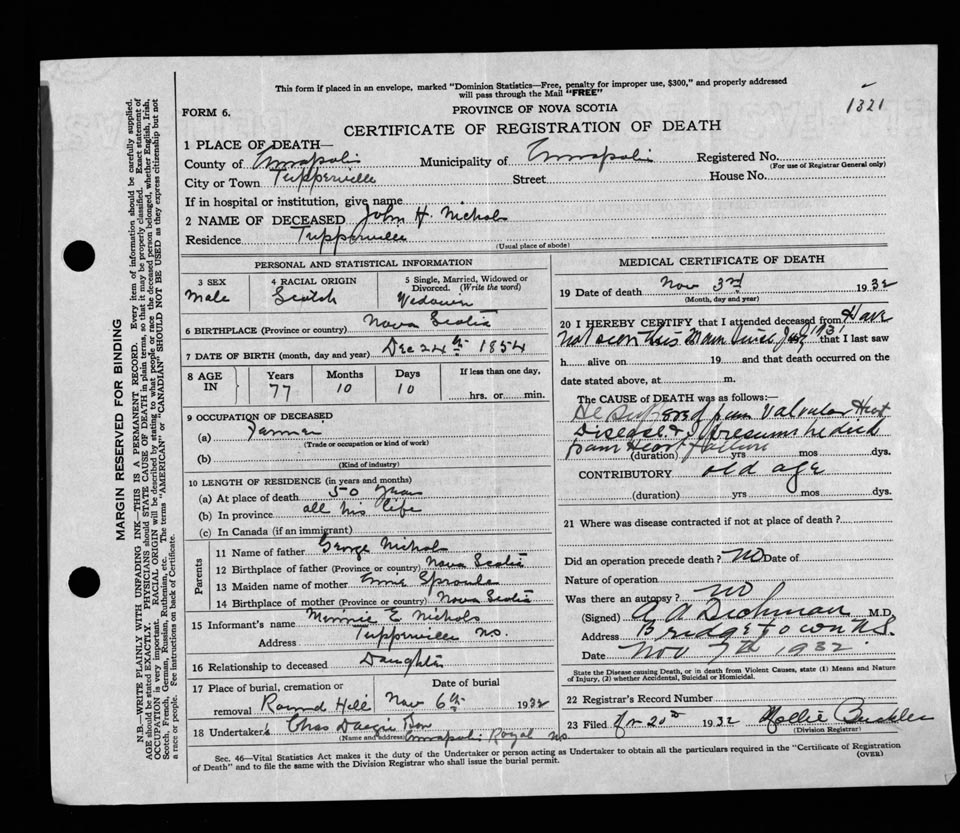 This form if placed in an envelope, marked "Dominion Statistics—Free, penalty for improper use, $300," and properly addressed
will pass through the Mail "FREE"
1321
FORM 6.
PROVINCE OF NOVA SCOTIA
CERTIFICATE OF REGISTRATION OF DEATH
MARGIN RESERVED FOR BINDING
N.B.—WRITE PLAINLY WITH UNFADING INK—THIS IS A PERMANENT RECORD. Every item of information should be carefully supplied.
AGE should be stated EXACTLY. PHYSICIANS should STATE CAUSE OF DEATH in plain terms, so that it may be properly classified. Exact statement of
OCCUPATION is very important. RACIAL ORIGIN will be described by stating to what people or race the deceased person belonged, whether English, Irish,
Scotch, French, German, Russian, Ruthenian, etc. The terms "AMERICAN" or "CANADIAN" SHOULD NOT BE USED as they express citizenship but not
a race or people. See instructions on back of Certificate.
1 PLACE OF DEATH—
County of Annapolis Municipality of Annapolis Registered No.
(For use of Registrar General only)
City or Town Tupperville Street House No.
If in hospital or institution, give name
2 NAME OF DECEASED John H. Nichols
Residence Tupperville
(Usual place of abode)
PERSONAL AND STATISTICAL INFORMATION
3 SEX 4 RACIAL ORIGIN 5 Single, Married, Widowed or
Divorced. (Write the word)
Male Scotch
6 BIRTHPLACE (Province or country) Nova Scotia
7 DATE OF BIRTH (month, day and year) Dec 24th 1854
8 AGE IN Years Months Days If less than one day,
77 10 10 hrs. or min.
9 OCCUPATION OF DECEASED
(a) Farmer
(Trade or occupation or kind of work)
(b)
(Kind of industry)
10 LENGTH OF RESIDENCE (in years and months)
(a) At place of death 50 years
(b) In province all his life
(c) In Canada (if an immigrant)
Parents
11 Name of father George Nichols
12 Birthplace of father (Province or country) Nova Scotia
13 Maiden name of mother Sproule
14 Birthplace of mother (Province or country) Nova Scotia
15 Informant's name Minnie E Nichols
Address Tupperville NS
16 Relationship to deceased Daughter
17 Place of burial, cremation or Date of burial
removal Round Hill Nov 6th 1932
18 Undertaker's Chas
(Name and address) Annapolis Royal NS
MEDICAL CERTIFICATE OF DEATH
19 Date of death Nov 3rd 1932
(Month, day and year)
20 I HEREBY CERTIFY that I attended deceased from Have
not seen this man since 1931 that I last saw
h alive on 19 and that death occurred on the
date stated above, at m.
The CAUSE OF DEATH was as follows:—
He from Valvular Heart
Disease & I presume he died
from Heart failure
(duration) yrs mos dys.
CONTRIBUTORY old age
(duration) yrs mos dys.
21 Where was disease contracted if not at place of death?
Did an operation precede death? NO Date of
Nature of operation
Was there an autopsy? NO
(Signed) A A Dechman M.D.
Address Bridgetown N.S.
Date Nov 7th 1932
State the Disease causing Death, or in death from Violent Causes, state (1) Means and Nature
of Injury, (2) whether Accidental, Suicidal or Homicidal.
22 Registrar's Record Number
23 Filed 20th 1932 Mollie Buckler
(Division Registrar)
Sec. 46—Vital Statistics Act makes it the duty of the Undertaker or person acting as Undertaker to obtain all the particulars required in the "Certificate of Registration
of Death" and to file the same with the Division Registrar who shall issue the burial permit. (OVER)